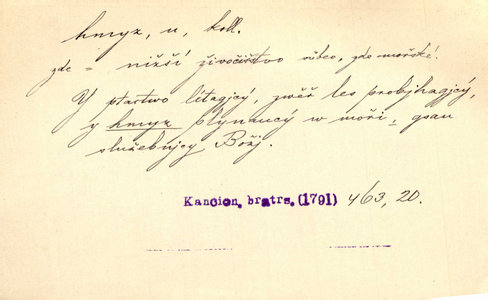 hmyz, u, koll.
zde = nižší živočišstvo vůbec, zde mořské.
Y ptactwo lítagjcý, zwěř les probjhagjcý,
y hmyz plynaucý w moři, gsau
služebnjcy Božj.
Kancion. bratrs. (1791) 463, 20.